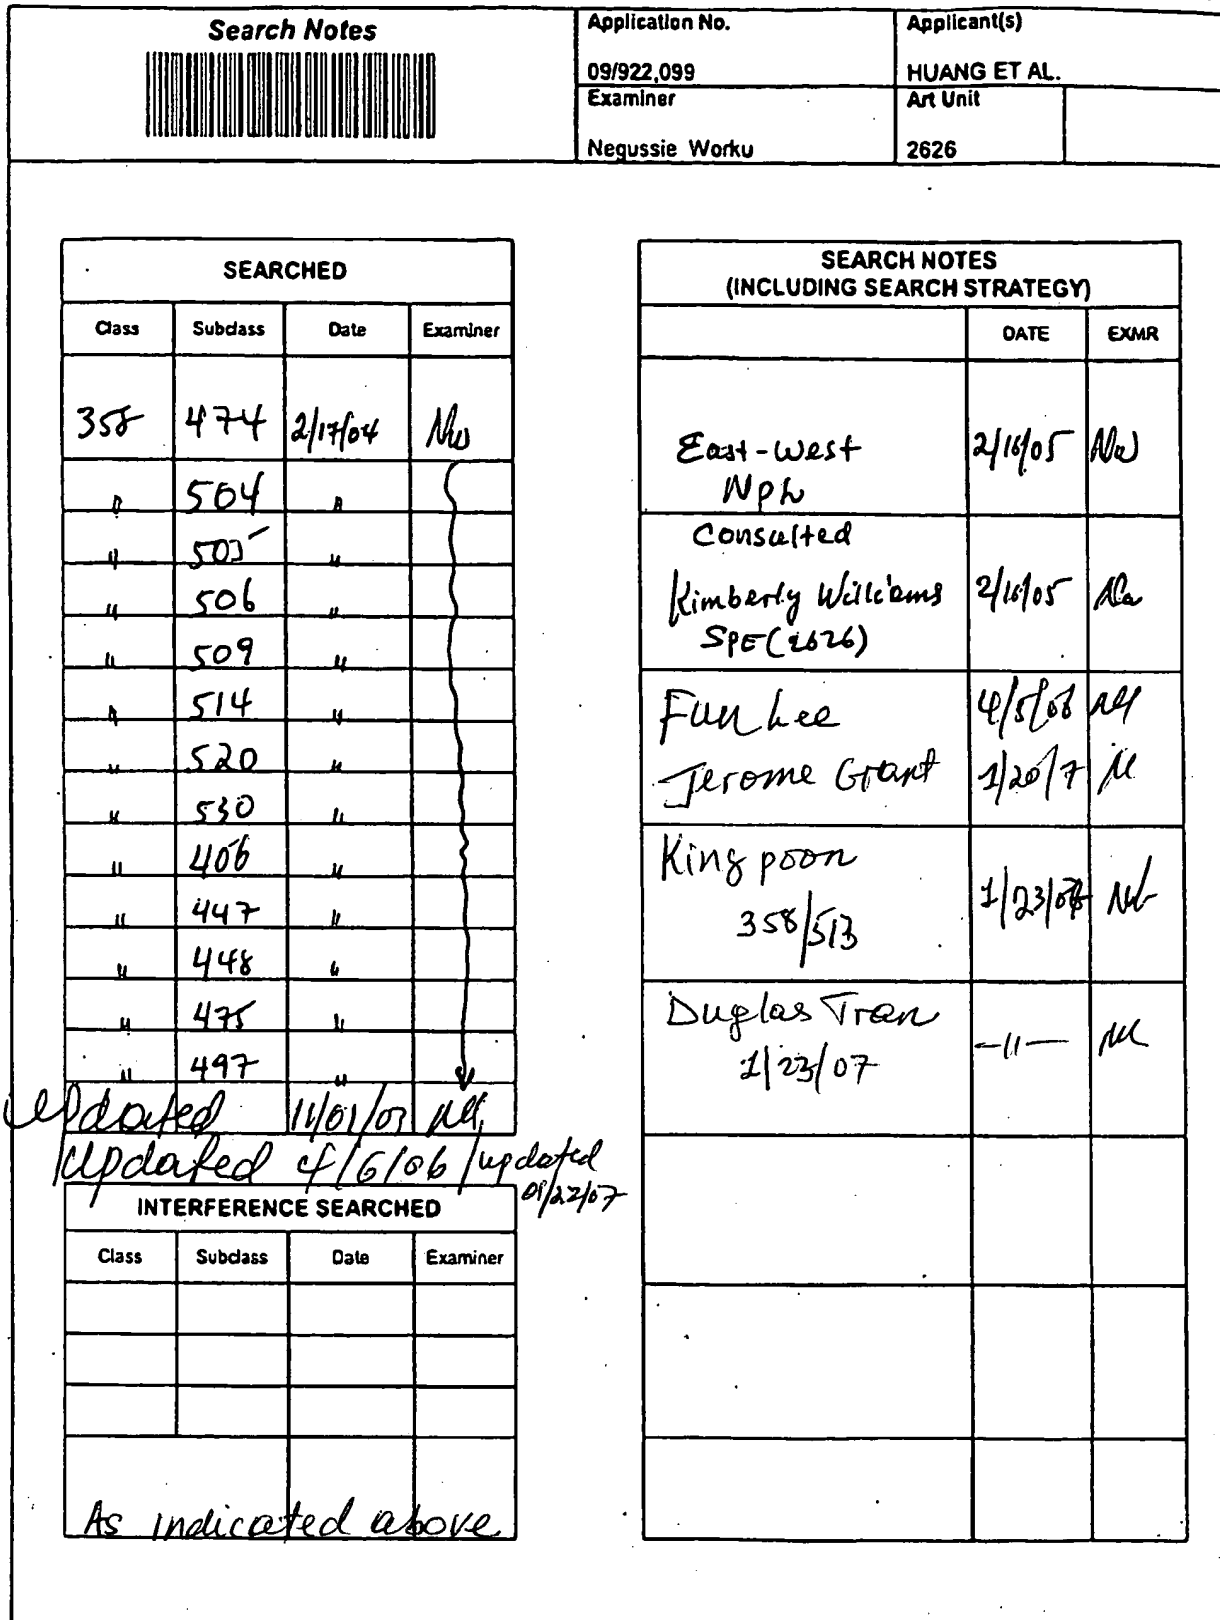 Search Notes
Application No.
09/922,099
Applicant(s)
HUANG ET AL.
Examiner
Negussie Worku
Art Unit
2626
SEARCHED
Class Subclass Date Examiner
358 474 2/17/04 NW
" 504 "
" 505 "
" 506 "
" 509 "
" 514 "
" 520 "
" 530 "
" 406 "
" 447 "
" 448 "
" 475 "
" 497 "
updated
updated 4/6/06 / updated
01/22/07
INTERFERENCE SEARCHED
Class Subclass Date Examiner
As indicated above
SEARCH NOTES
(INCLUDING SEARCH STRATEGY)
DATE EXMR
East-West 2/16/05 NW
NPL
Consulted
Kimberly Williams 2/16/05
SPE (2626)
Fun Lee
Jerome Grant 1/20/7
King poon
358/513
Duglas Tran -"-
1/23/07